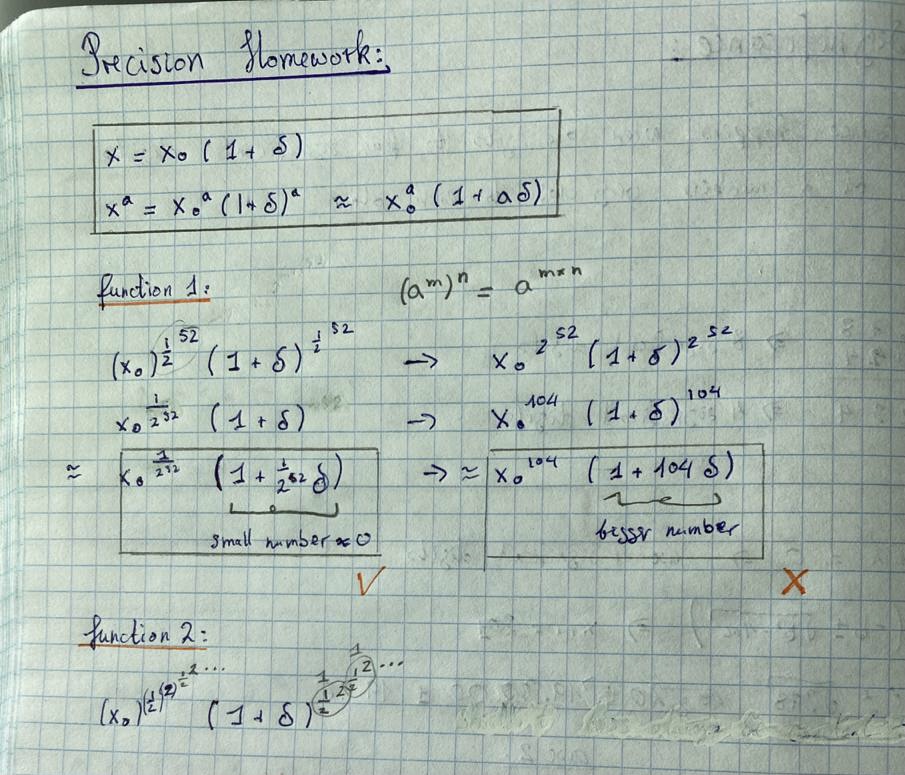 Precision Homework:
x = x₀ (1 + δ)
xᵃ = x₀ᵃ (1+δ)ᵃ ≈ x₀ᵃ (1 + aδ)
function 1: (aᵐ)ⁿ = a^(m×n)
(x₀)^(1/2)^52 (1 + δ)^(1/2)^52 → x₀^2^52 (1 + δ)^2^52
x₀^(1/2^52) (1 + δ) → x₀^104 (1 + δ)^104
≈ x₀^(1/2^52) (1 + 1/2^52 δ) → ≈ x₀^104 (1 + 104 δ)
small number ≈ 0
number
V X
function 2:
(x₀)^(1/2)^(2)^1/2^2... (1 + δ)^1/2^2^1/2^2...
1 1